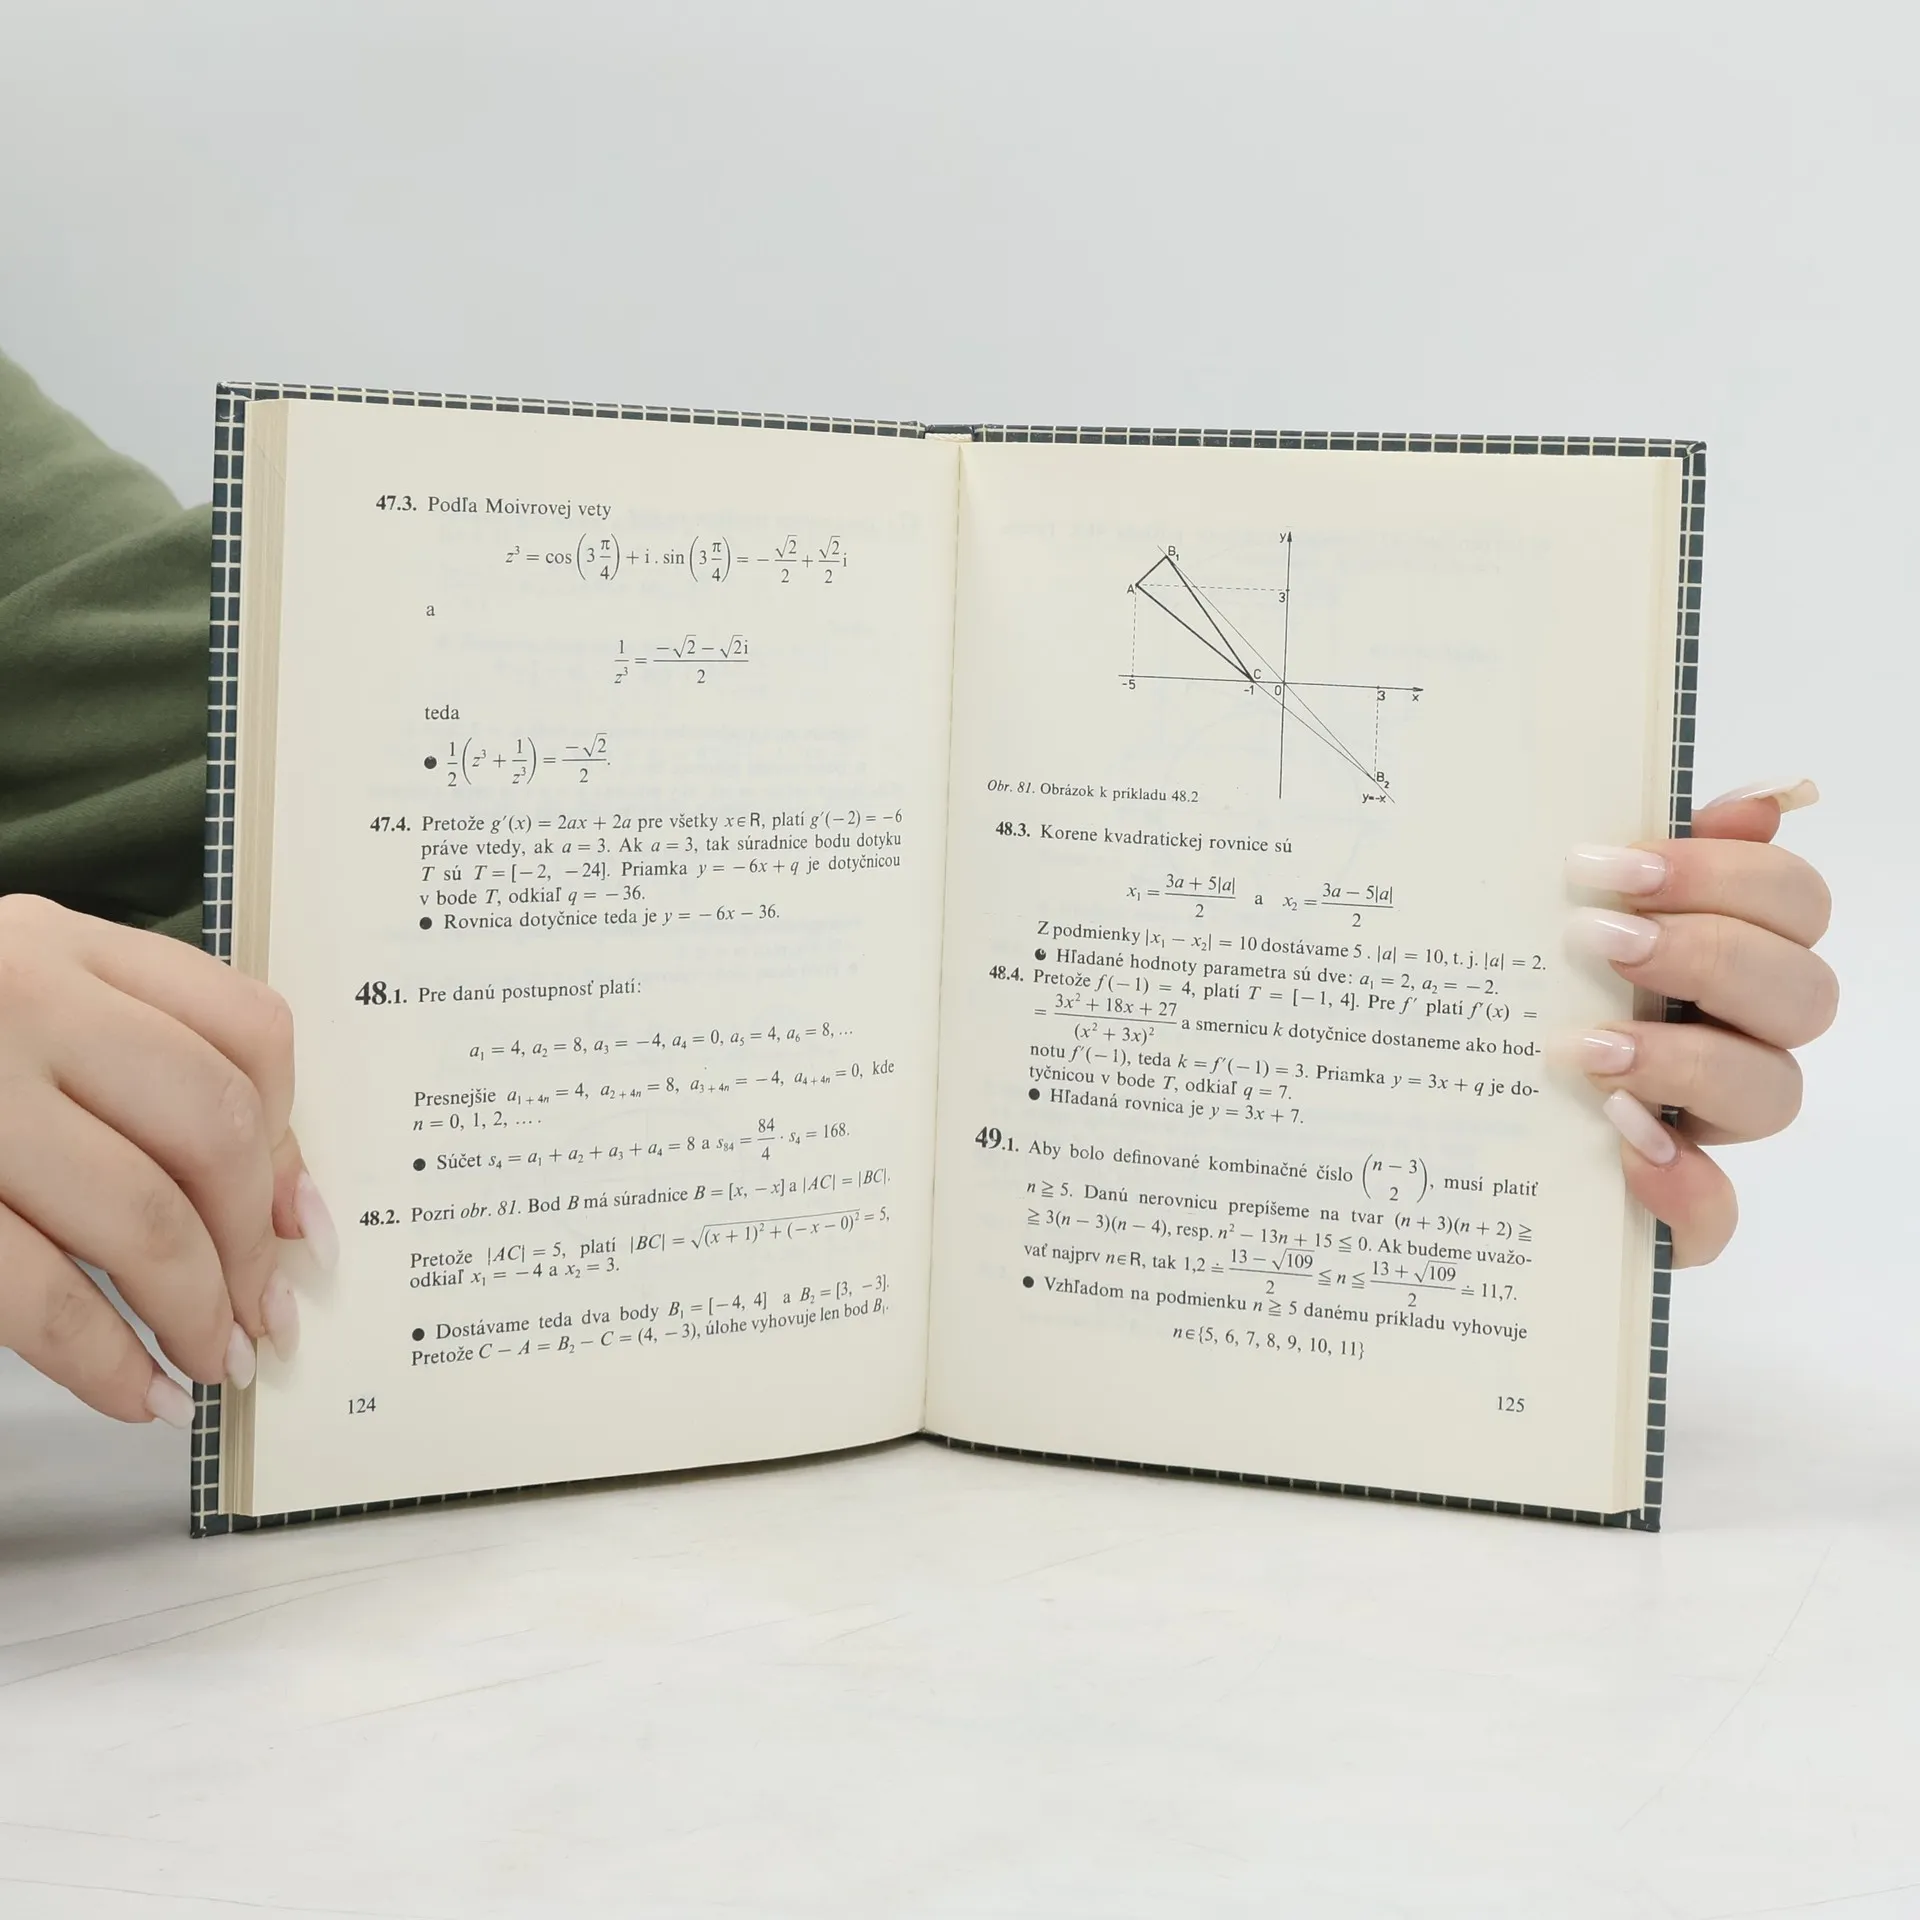 47.3. Podľa Moivrovej vety
z³ = cos(3 π/4) + i . sin(3 π/4) = − √2/2 + √2/2 i
a
1/z³ = (−√2 − √2i)/2
teda
● 1/2 (z³ + 1/z³) = −√2/2.
47.4. Pretože g′(x) = 2ax + 2a pre všetky x∈R, platí g′(−2) = −6
práve vtedy, ak a = 3. Ak a = 3, tak súradnice bodu dotyku
T sú T = [−2, −24]. Priamka y = −6x + q je dotyčnicou
v bode T, odkiaľ q = −36.
● Rovnica dotyčnice teda je y = −6x − 36.
48.1. Pre danú postupnosť platí:
a₁ = 4, a₂ = 8, a₃ = −4, a₄ = 0, a₅ = 4, a₆ = 8, ...
Presnejšie a₁₊₄ₙ = 4, a₂₊₄ₙ = 8, a₃₊₄ₙ = −4, a₄₊₄ₙ = 0, kde
n = 0, 1, 2, ... .
● Súčet s₄ = a₁ + a₂ + a₃ + a₄ = 8 a s₈₄ = 84/4 · s₄ = 168.
48.2. Pozri obr. 81. Bod B má súradnice B = [x, −x] a |AC| = |BC|.
Pretože |AC| = 5, platí |BC| = √((x + 1)² + (−x − 0)²) = 5,
odkiaľ x₁ = −4 a x₂ = 3.
● Dostávame teda dva body B₁ = [−4, 4] a B₂ = [3, −3].
Pretože C − A = B₂ − C = (4, −3), úlohe vyhovuje len bod B₁.
124
y
B₁
A
3
C
-5
-1
0
3
x
B₂
y=-x
Obr. 81. Obrázok k príkladu 48.2
48.3. Korene kvadratickej rovnice sú
x₁ = (3a + 5|a|)/2 a x₂ = (3a − 5|a|)/2
Z podmienky |x₁ − x₂| = 10 dostávame 5 . |a| = 10, t. j. |a| = 2.
● Hľadané hodnoty parametra sú dve: a₁ = 2, a₂ = −2.
48.4. Pretože f(−1) = 4, platí T = [−1, 4]. Pre f′ platí f′(x) =
= (3x² + 18x + 27)/(x² + 3x)² a smernicu k dotyčnice dostaneme ako hod-
notu f′(−1), teda k = f′(−1) = 3. Priamka y = 3x + q je do-
tyčnicou v bode T, odkiaľ q = 7.
● Hľadaná rovnica je y = 3x + 7.
49.1. Aby bolo definované kombinačné číslo (n − 3 2), musí platiť
n ≧ 5. Danú nerovnicu prepíšeme na tvar (n + 3)(n + 2) ≧
≧ 3(n − 3)(n − 4), resp. n² − 13n + 15 ≦ 0. Ak budeme uvažo-
vať najprv n∈R, tak 1,2 ≐ (13 − √109)/2 ≦ n ≦ (13 + √109)/2 ≐ 11,7.
● Vzhľadom na podmienku n ≧ 5 danému príkladu vyhovuje
n∈{5, 6, 7, 8, 9, 10, 11}
125